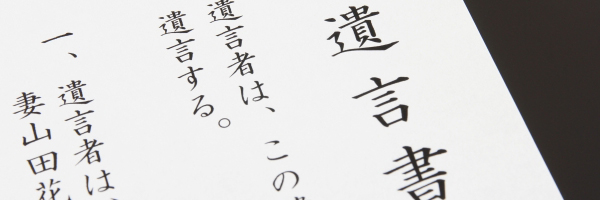 遺言書
遺言者は、この
遺言する。
一、遺言者は、
妻山田花